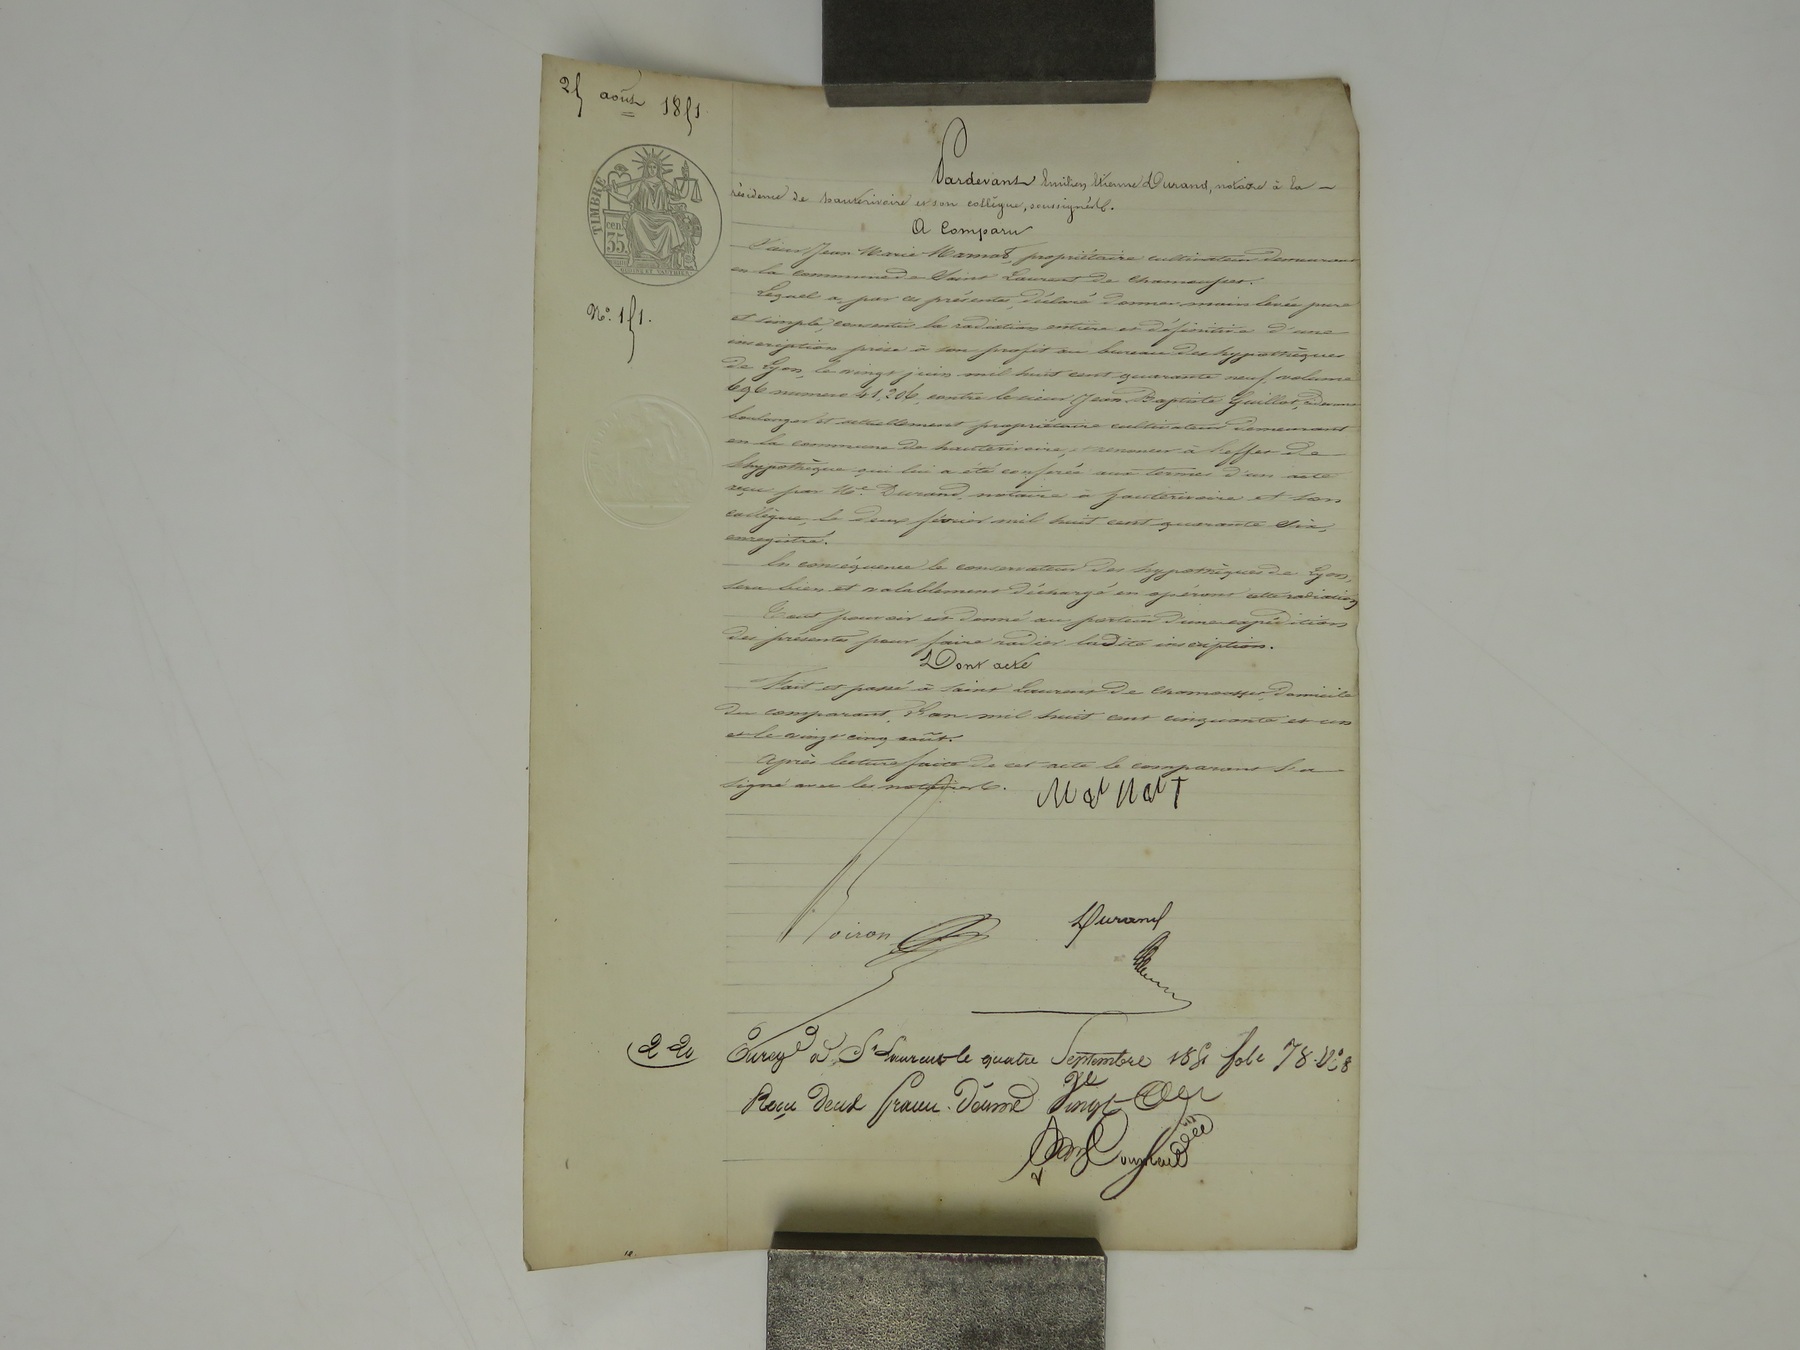 25 août 1851
TIMBRE
35 cen
N°. 151.
Pardevant Emilien Etienne Durand, notaire à la
résidence de hauterivoire et son collègue, soussignés.
A Comparu
Sieur Jean Marie Marnat, propriétaire cultivateur demeurant
en la commune de Saint Laurent de Chamousset.
Lequel a, par ces présentes, déclaré donner main levée pure
et simple, consentir la radiation entière et définitive d'une
inscription prise à son profit au bureau des hypothèques
de Lyon, le vingt juin mil huit cent quarante neuf, volume
696 numero 41,206, contre le sieur Jean Baptiste Guillot,
boulanger et actuellement propriétaire cultivateur demeurant
en la commune de hauterivoire, et renoncer à l'effet de
l'hypothèque qui lui a été conférée aux termes d'un acte
reçu par Me. Durand notaire à hauterivoire et son
collègue, le deux février mil huit cent quarante six,
enregistré.
En conséquence le conservateur des hypothèques de Lyon,
sera bien et valablement déchargé en opérant cette radiation
Tout pouvoir est donné au porteur d'une expédition
des présentes pour faire radier ladite inscription.
Dont acte
Fait et passé à Saint Laurent de Chamousset, domicile
du comparant, l'an mil huit cent cinquante et un
et le vingt cinq août.
Après lecture faite de cet acte le comparant l'a
signé avec les notaires.
Marnat
Voiron
Durand
2 20
Enregé à St Laurent le quatre Septembre 1851 folo 78 Vo 8
Reçu deux francs. Décime Vingt Cges